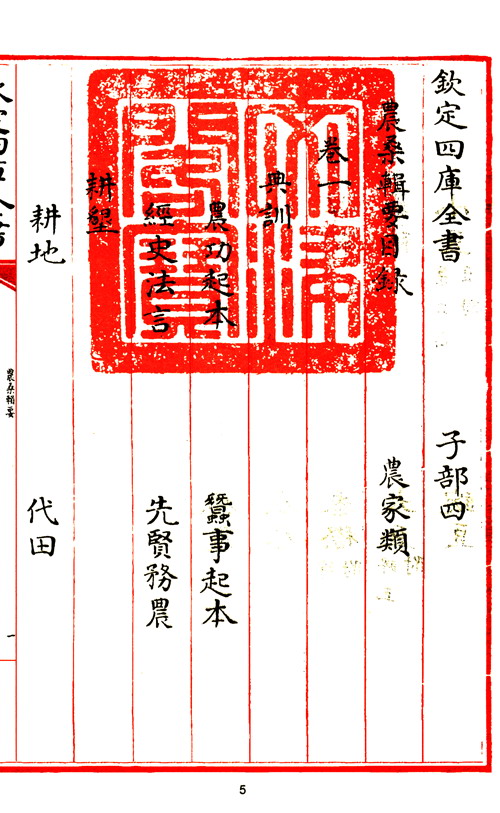 欽定四庫全書 子部四
農桑輯要目録 農家類
卷一
典訓
農功起本 蠶事起本
經史法言 先賢務農
耕墾
耕地 代田
農桑輯要
一
5